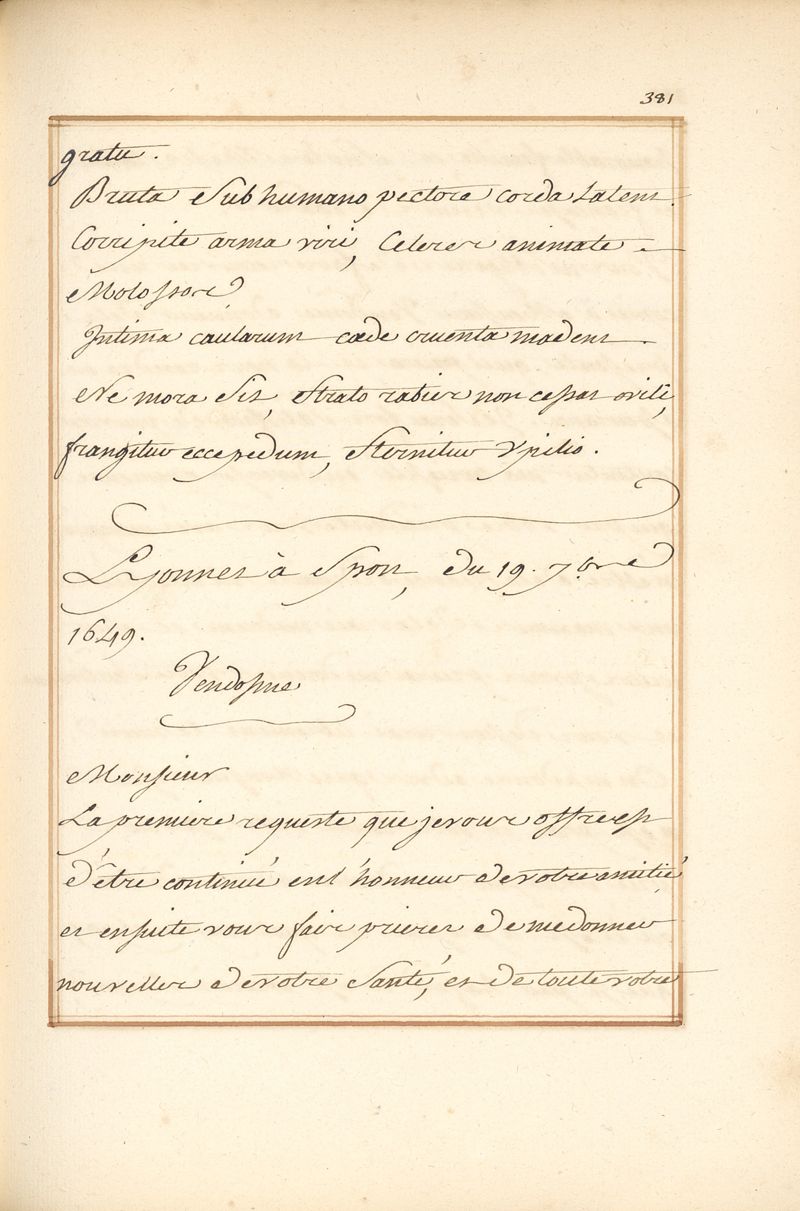 381
gratu.
Bruta Sub humano pectore corda latent.
Corripite arma viri, Celeres animate
Molossos,
Intima caularum cæde cruenta madent.
Ne mora Sit, Strato rabies non cessat ovili,
frangitur ecce pedum, Sternitur Vpilio.
Lyonnes à Spon, du 19. 7bre
1649.
Vendosme
Monsieur
La premiere requeste que je vous offre est
d'être continué en l'honneur de votre amitié
et ensuite vous fais prieres de me donner
nouvelles de votre Santé, et de toute votre